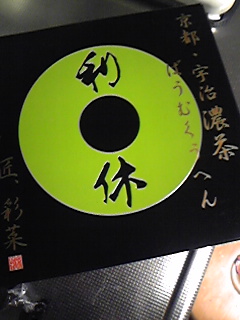 京都・宇治濃茶
ばうむくうへん
利休
匠、彩菜